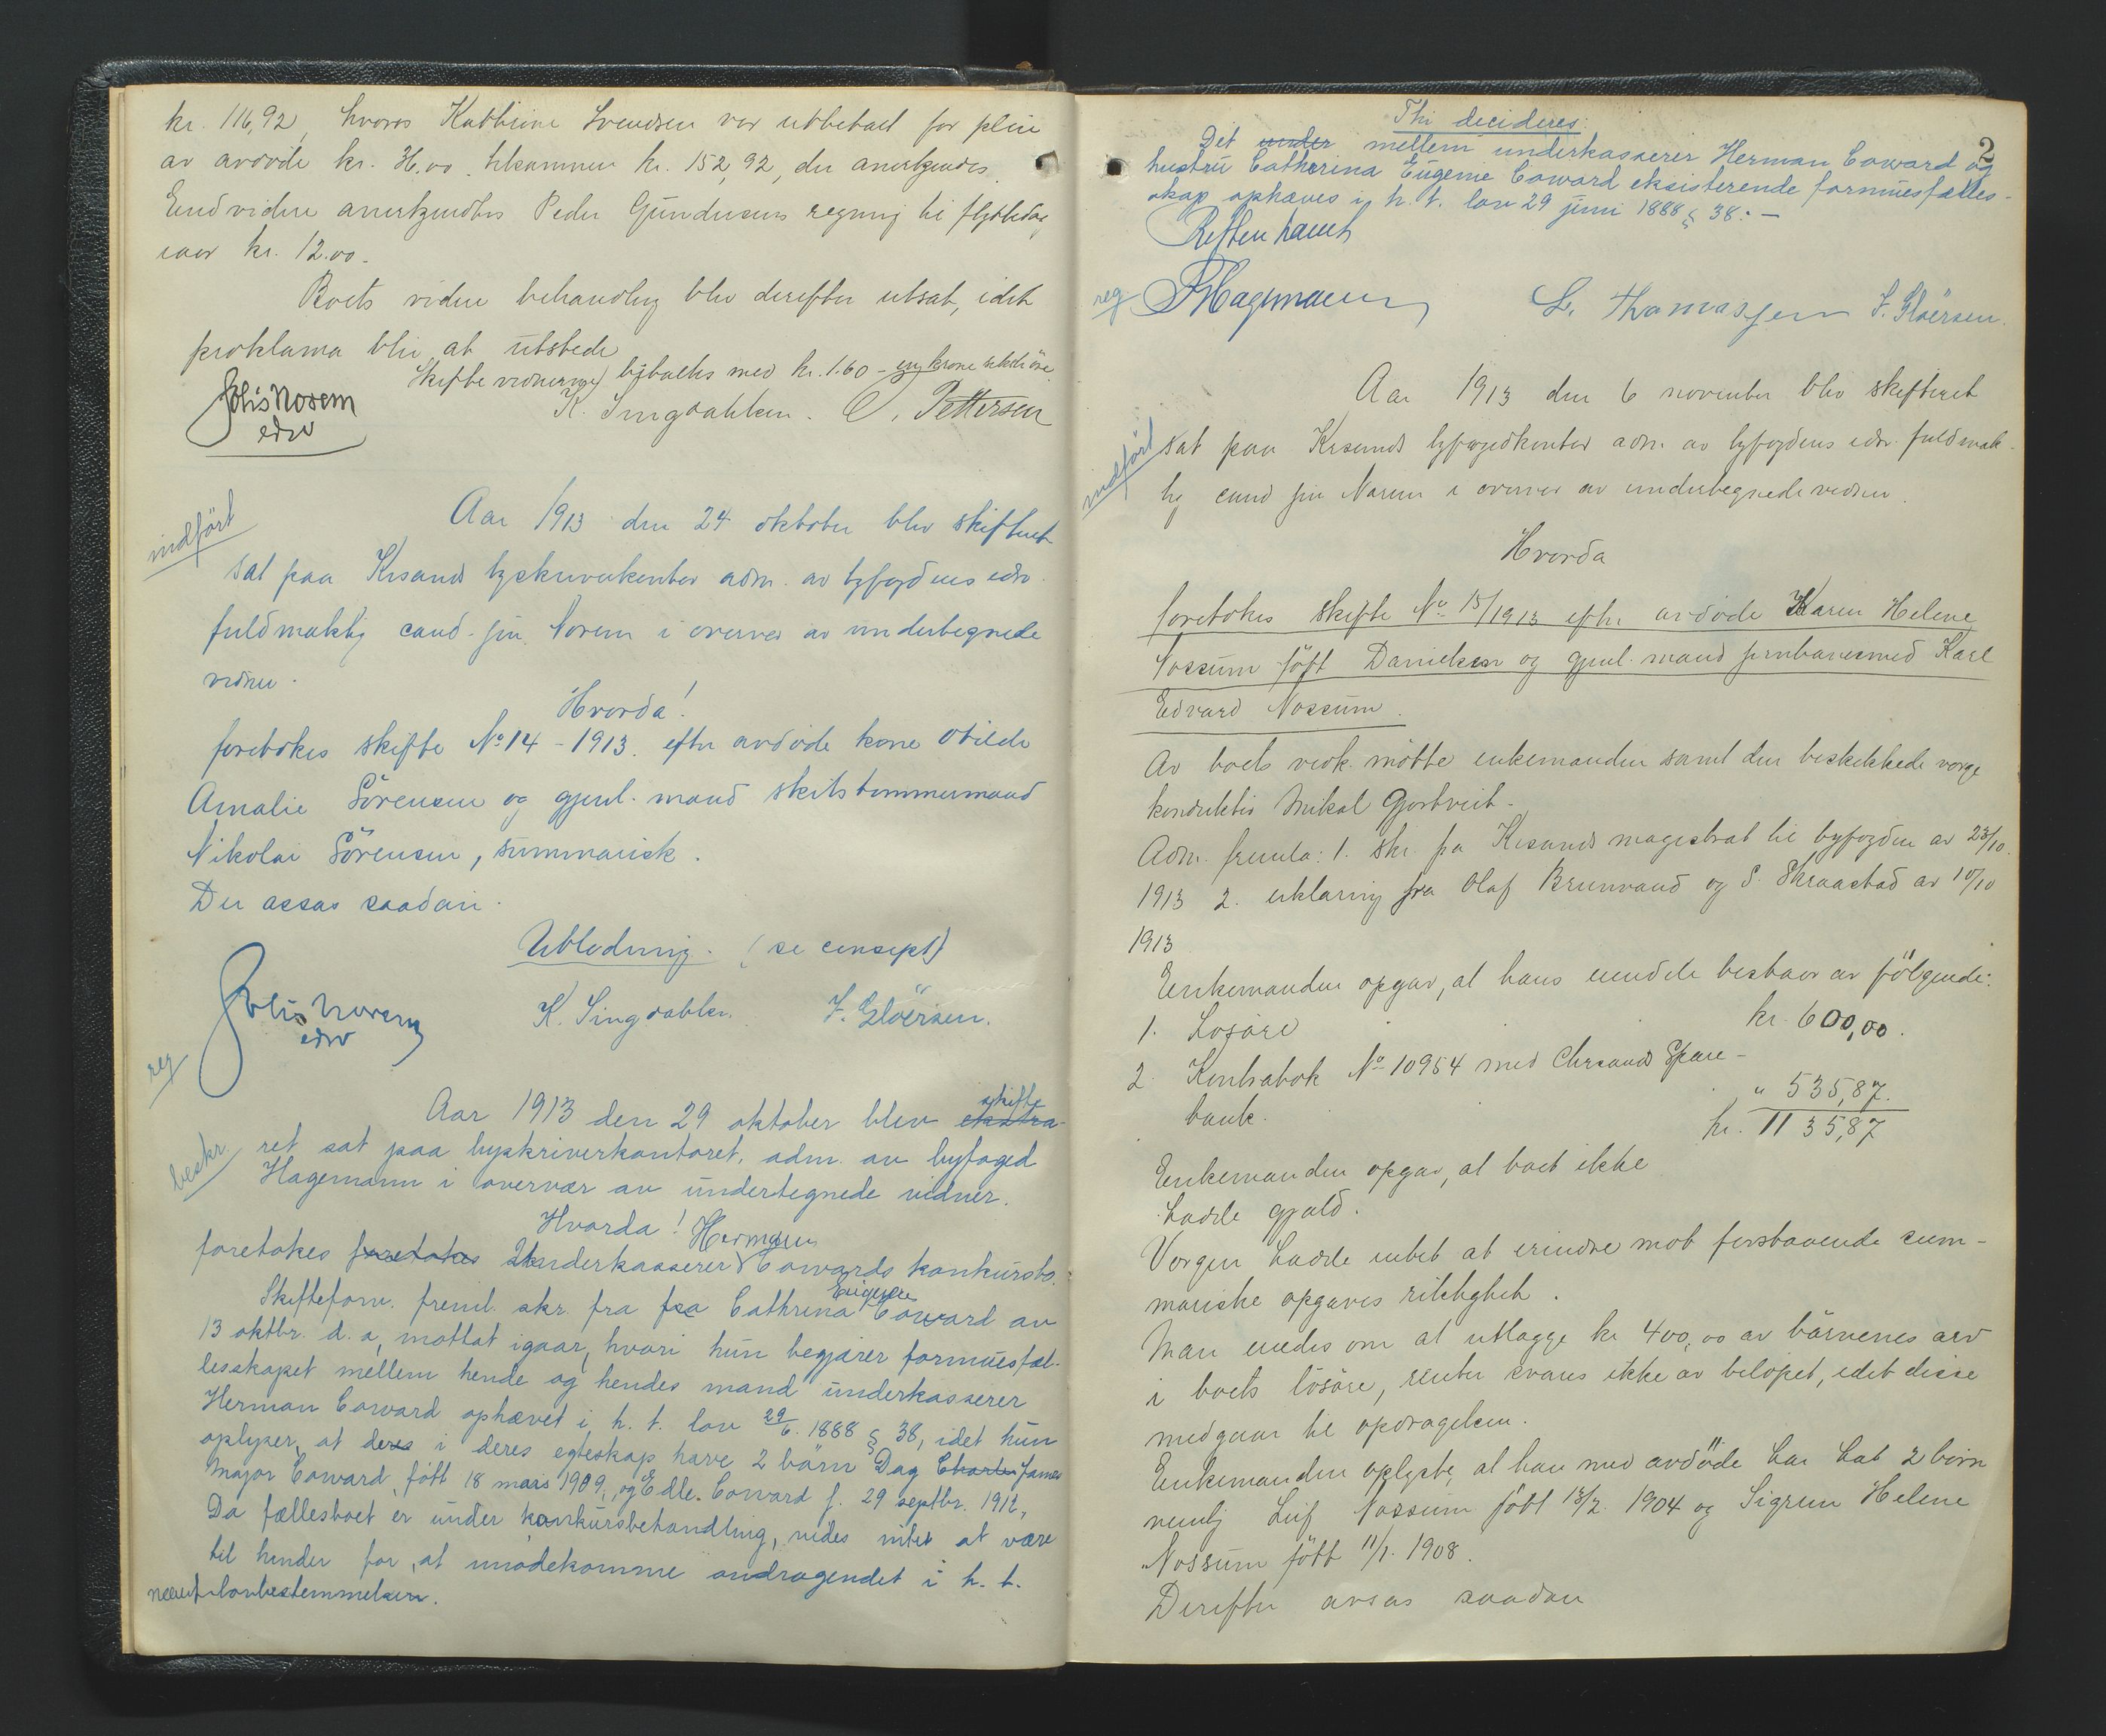 kr. 116,92, hvoros Kathrine Svendsen var utbetalt for pleie
av avdøde kr. 36.00 tilsammen kr. 152,92, der anerkjendes.
Endvidere anerkjendtes Peder Gundersens regning til flytteda
kr. 12.00.
Boets videre behandling blev derefter utsat, idet
proklama blir at utstede
Skiftevidnerne biltaltes med kr. 1.60 - en krone seksti øre.
Johs Norem
edsv
K. Singdahlsen. O. Pettersen
indført
Aar 1913 den 24 oktober blev skifteret
sat paa Krsands byskriverkontor adm. av byfogdens edsv.
fuldmægtig cand. jur. Norem i overvær av undertegnede
vidner.
Hvorda!
foretokes skifte No 14 - 1913. efter avdøde kone Otilde
Amalie Sörensen og gjenl. mand skibstømmermand
Nikolai Sörensen, summarisk.
Der assas saadan
Utlodning. (se concept)
Johs Norem
edsv
K. Singdahlsen. F. Glöersen.
reg
Aar 1913 den 29 oktober blev ekstra- skifte
beskr.
ret sat paa byskriverkontoret, adm. av byfoged
Hagemann i overvær av undertegnede vidner.
Hvorda!
Herman
foretokes foretokes underkasserer Cowards konkursbo.
Eugenie
Skifteforv. freml. skr. fra fra Cathrina Coward av
13 oktbr. d. a, mottat igaar, hvori hun begjærer formuesfæl-
lesskapet mellem hende og hendes mand underkasserer
Herman Coward ophævet i h. t. lov 29/6. 1888 § 38, idet hun
oplyser, at deres i deres egteskap have 2 börn Dag Charles James
Major Coward, fött 18 mars 1909, og Edle Coward f. 29 septbr. 1912,
Da fællesboet er under konkursbehandling, vides intet at være
til hinder for, at imødekomme andragendet i h. t.
nævnt lovbestemmelsen.
2
Thi decideres:
Det under mellem underkasserer Herman Coward og
hustru Catherina Eugenie Coward eksisterende formuesfælles-
skap ophæves i h. t. lov 29 juni 1888 § 38. -
Retten hævet
reg
Hagemann
L. Thomassen F. Glöersen.
Aar 1913 den 6 november blev skifteret
indført
sat paa Krsands byfogedkontor adm. av byfogdens edsv. fuldmæk-
tig cand jur Norem i overvær av undertegnede vidner.
Hvorda
foretokes skifte No 15/1913 efter avdøde Karen Helene
Nossum født Danielsen og gjenl. mand jernbanesmed Karl
Edvard Nossum.
Av boets vedk. møtte enkemanden samt den beskikkede verge
konduktör Mikal Gjostveit.
Adm. fremla: 1. skr. fra Krsands magistrat til byfogden av 23/10.
1913 2. erklæring fra Olaf Brunvand og S. Skraastad av 10/10
1913
Enkemanden opgav, at hans eiendele bestaar av fölgende:
1. Losöre kr. 600,00.
2. Kontrabok No 10954 med Chrsands Spare-
bank. " 535,87.
kr. 1135,87
Enkemanden opgav, at boet ikke
hadde gjæld.
Vergen hadde intet at erindre mot forstaaende sum-
mariske opgaves riktighet.
Man enedes om at utlægge kr 400,00 av börnenes arv
i boets lösöre, renter svares ikke av belöpet, idet disse
medgaar til opdragelsen.
Enkemanden oplyste, at han med avdöde har hat 2 börn
nemlig Leif Nossum fött 13/2. 1904 og Sigrun Helene
Nossum fött 11/1. 1908.
Derefter avsas saadan